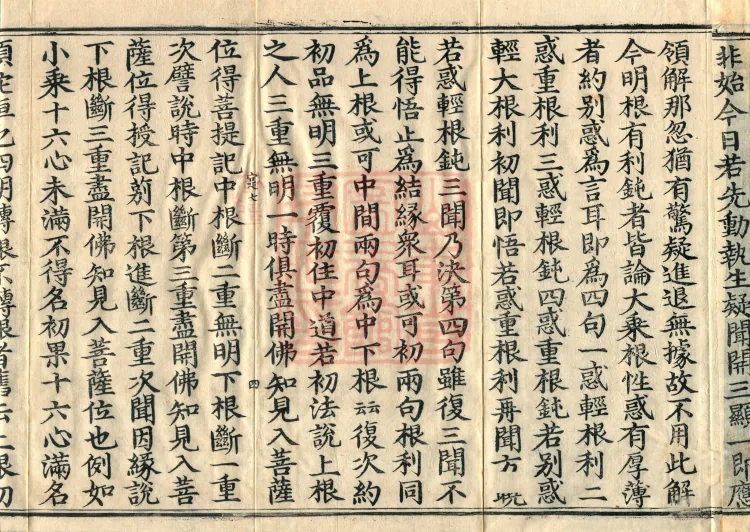 非始今日若先動執生疑聞開三顯一即應
領解那忽猶有驚疑進退無據故不用此解
今明根有利鈍者皆論大乘根性惑有厚薄
者約別惑為言耳即為四句一惑輕根利二
惑重根利三惑輕根鈍四惑重根鈍若別惑
輕大根利初聞即悟若惑重根利再聞方晩
若惑輕根鈍三聞乃決第四句雖復三聞不
能得悟止為結緣衆耳或可初兩句根利同
為上根或可中間兩句為中下根云云復次約
初品無明三重覆初住中道若初法說上根
之人三重無明一時俱盡開佛知見入菩薩
四
位得菩提記中根斷二重無明下根斷一重
次譬說時中根斷第三重盡開佛知見入菩
薩位得授記莂下根進斷二重次聞因緣說
下根斷三重盡開佛知見入菩薩位也例如
小乘十六心未滿不得名初果十六心滿名